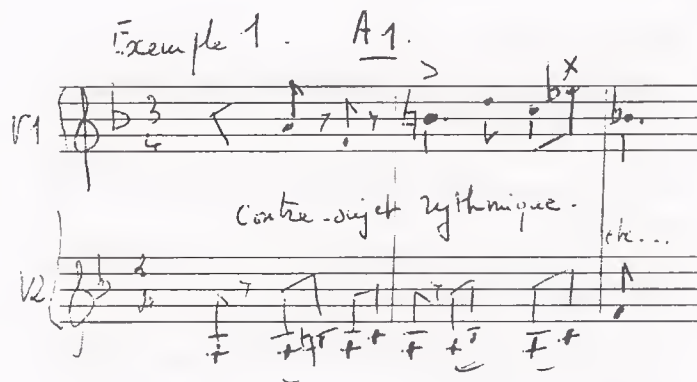 Exemple 1. A1.
V1 3
4
Contre-sujet rythmique.
etc...
V2 2